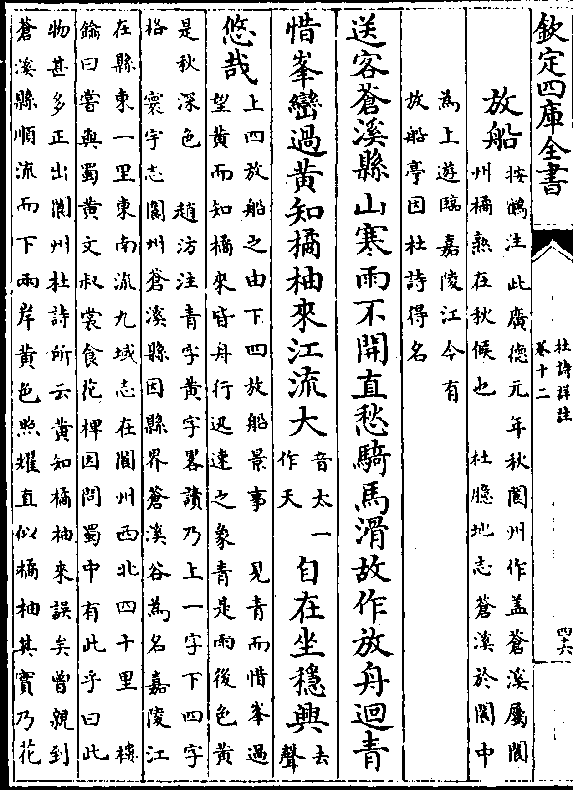 欽定四庫全書
杜詩詳註
卷十二
四六
放船
按鶴注此廣德元年秋閬州作盖蒼溪屬閬
州橘熟在秋候也　杜臆地志蒼溪於閬中
為上遊臨嘉陵江今有
放船亭因杜詩得名
送客蒼溪縣山寒雨不開直愁騎馬滑故作放舟迴青
惜峯巒過黄知橘柚來江流大
音太一
作天
自在坐穏興
去
聲
悠哉
上四放船之由下四放船景事　見青而惜峯過
望黄而知橘來皆舟行迅速之象青是雨後色黄
是秋深色　趙汸注青字黄字畧讀乃上一字下四字
格　寰宇志閬州蒼溪縣因縣界蒼溪谷為名嘉陵江
在縣東一里東南流九域志在閬州西北四十里　樓
鑰曰嘗與蜀黄文叔裳食花椑因問蜀中有此乎曰此
物甚多正出閬州杜詩所云黄知橘柚來誤矣曾親到
蒼溪縣順流而下兩岸黄色照燿直似橘柚其實乃花